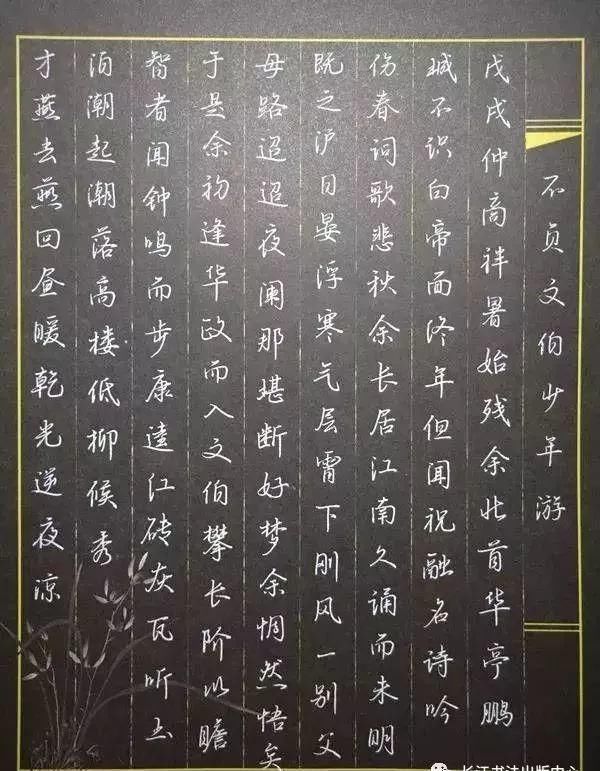 不负文伯少年游
戊戌仲商祥暑始残余北首华亭鹏
城不识白帝面终年但闻祝融名诗吟
伤春词歌悲秋余长居江南久诵而未明
既之沪日晏浮寒气层霄下刚风一别父
母路迢迢夜阑那堪断好梦余惆然悟矣
于是余初逢华政而入文伯攀长阶以瞻
智者闻钟鸣而步康逵江砖灰瓦听土
泊潮起潮落高楼低柳候秀
才燕去燕回昼暖乾光逆夜凉
长江书法出版中心